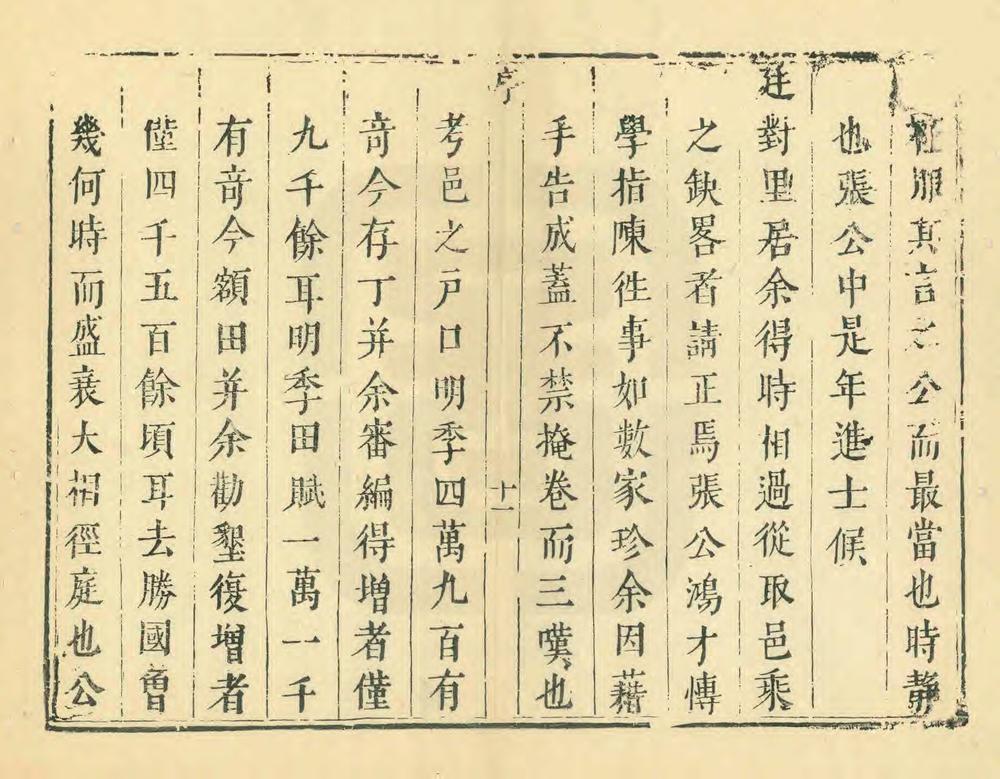 服真言之公而最當也時靜
也張公中是年進士候
廷對里居余得時相過從取邑乘
之缺畧者請正焉張公鴻才愽
學指陳徃事如數家珍余因藉
手告成蓋不禁掩卷而三嘆也
序
十一
考邑之戸口明季四萬九百有
竒今存丁并余審編得增者僅
九千餘耳明季田賦一萬一千
有竒今額田并余勸墾復增者
僅四千五百餘頃耳去勝國曾
幾何時而盛衰大相徑庭也公